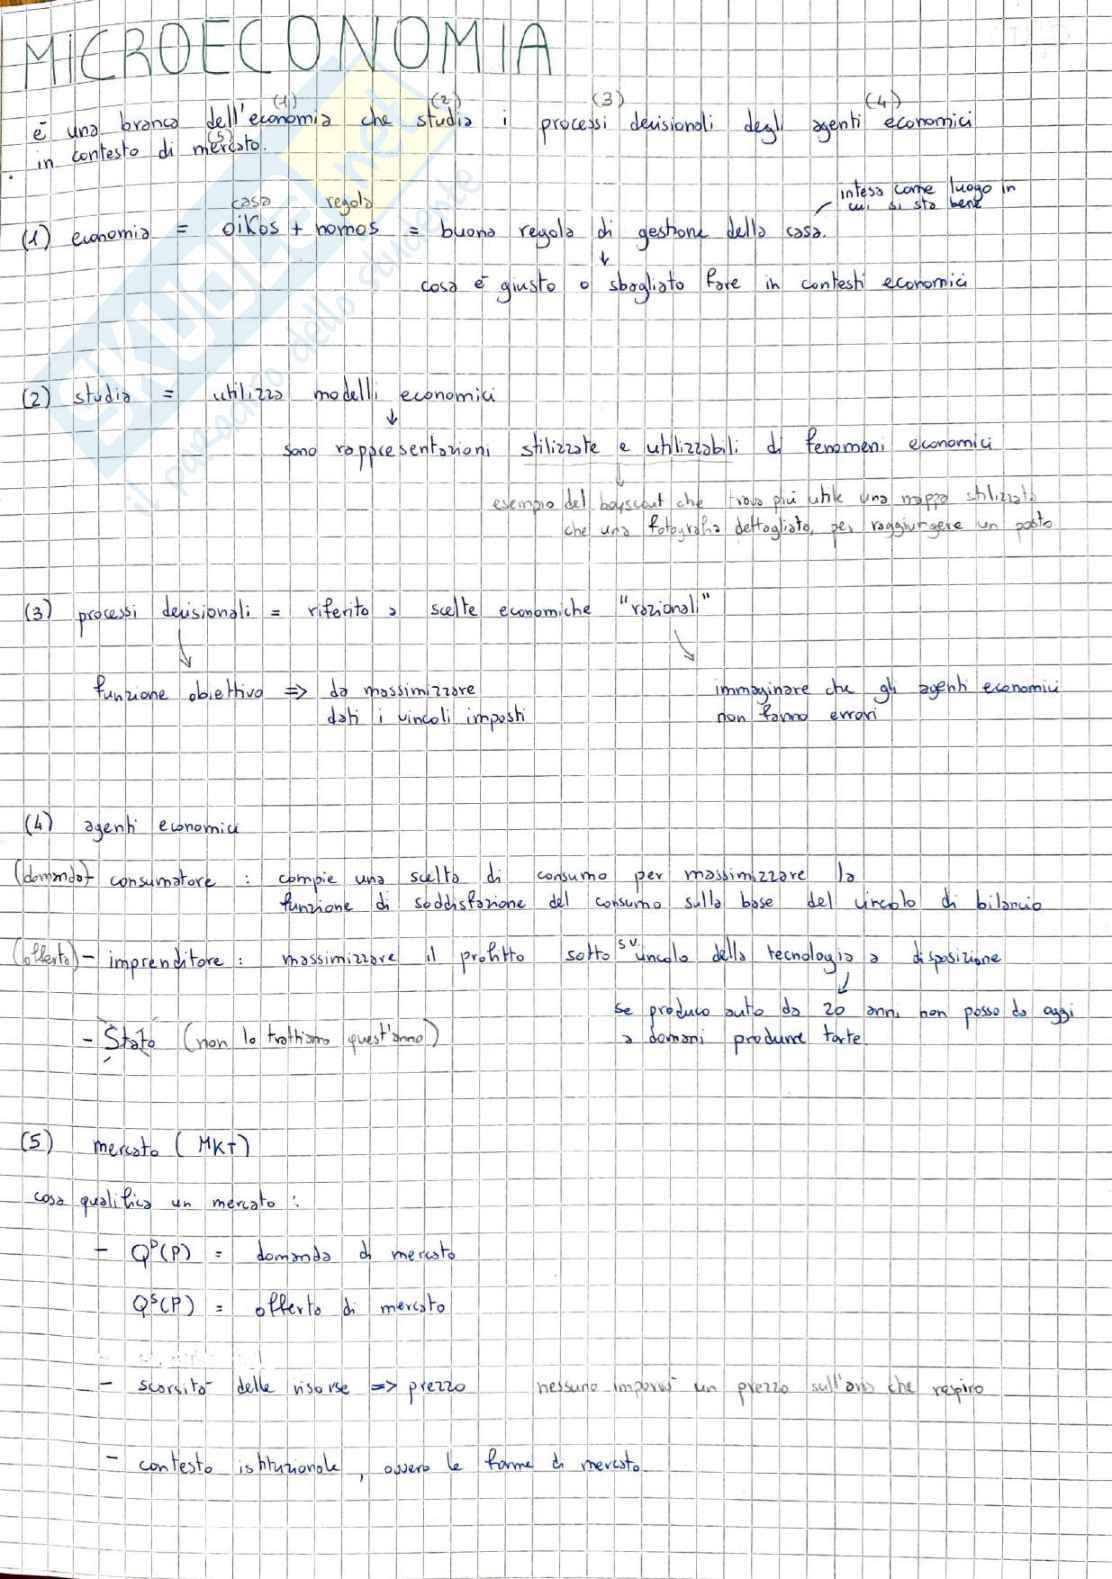 MICROECONOMIA
(1) (2) (3) (4)
è una branca dell'economia che studia i processi decisionali degli agenti economici
(5)
in contesto di mercato.
intesa come luogo in
cui si sta bene
casa regola
(1) economia = oikos + nomos = buona regola di gestione della casa.
↓
cosa è giusto o sbagliato fare in contesti economici
(2) studia = utilizza modelli economici
↓
sono rappresentazioni stilizzate e utilizzabili di fenomeni economici
↓
esempio del boyscout che trova più utile una mappa stilizzata
che una fotografia dettagliata, per raggiungere un posto
(3) processi decisionali = riferito a scelte economiche "razionali"
funzione obiettivo => da massimizzare
dati i vincoli imposti
immaginare che gli agenti economici
non fanno errori
(4) agenti economici
(domanda) - consumatore : compie una scelta di consumo per massimizzare la
funzione di soddisfazione del consumo sulla base del vincolo di bilancio
(offerta) - imprenditore : massimizzare il profitto sotto sv vincolo della tecnologia a disposizione
↓
se produco auto da 20 anni non posso da oggi
a domani produrre torte.
- Stato (non lo trattiamo quest'anno)
(5) mercato (MKT)
cosa qualifica un mercato :
- Qᴰ(P) = domanda di mercato
Qˢ(P) = offerta di mercato
- scarsità delle risorse => prezzo nessuno imporrà un prezzo sull'aria che respiro
- contesto istituzionale, ovvero le forme di mercato
SKUOLA.net
il paradiso dello studente